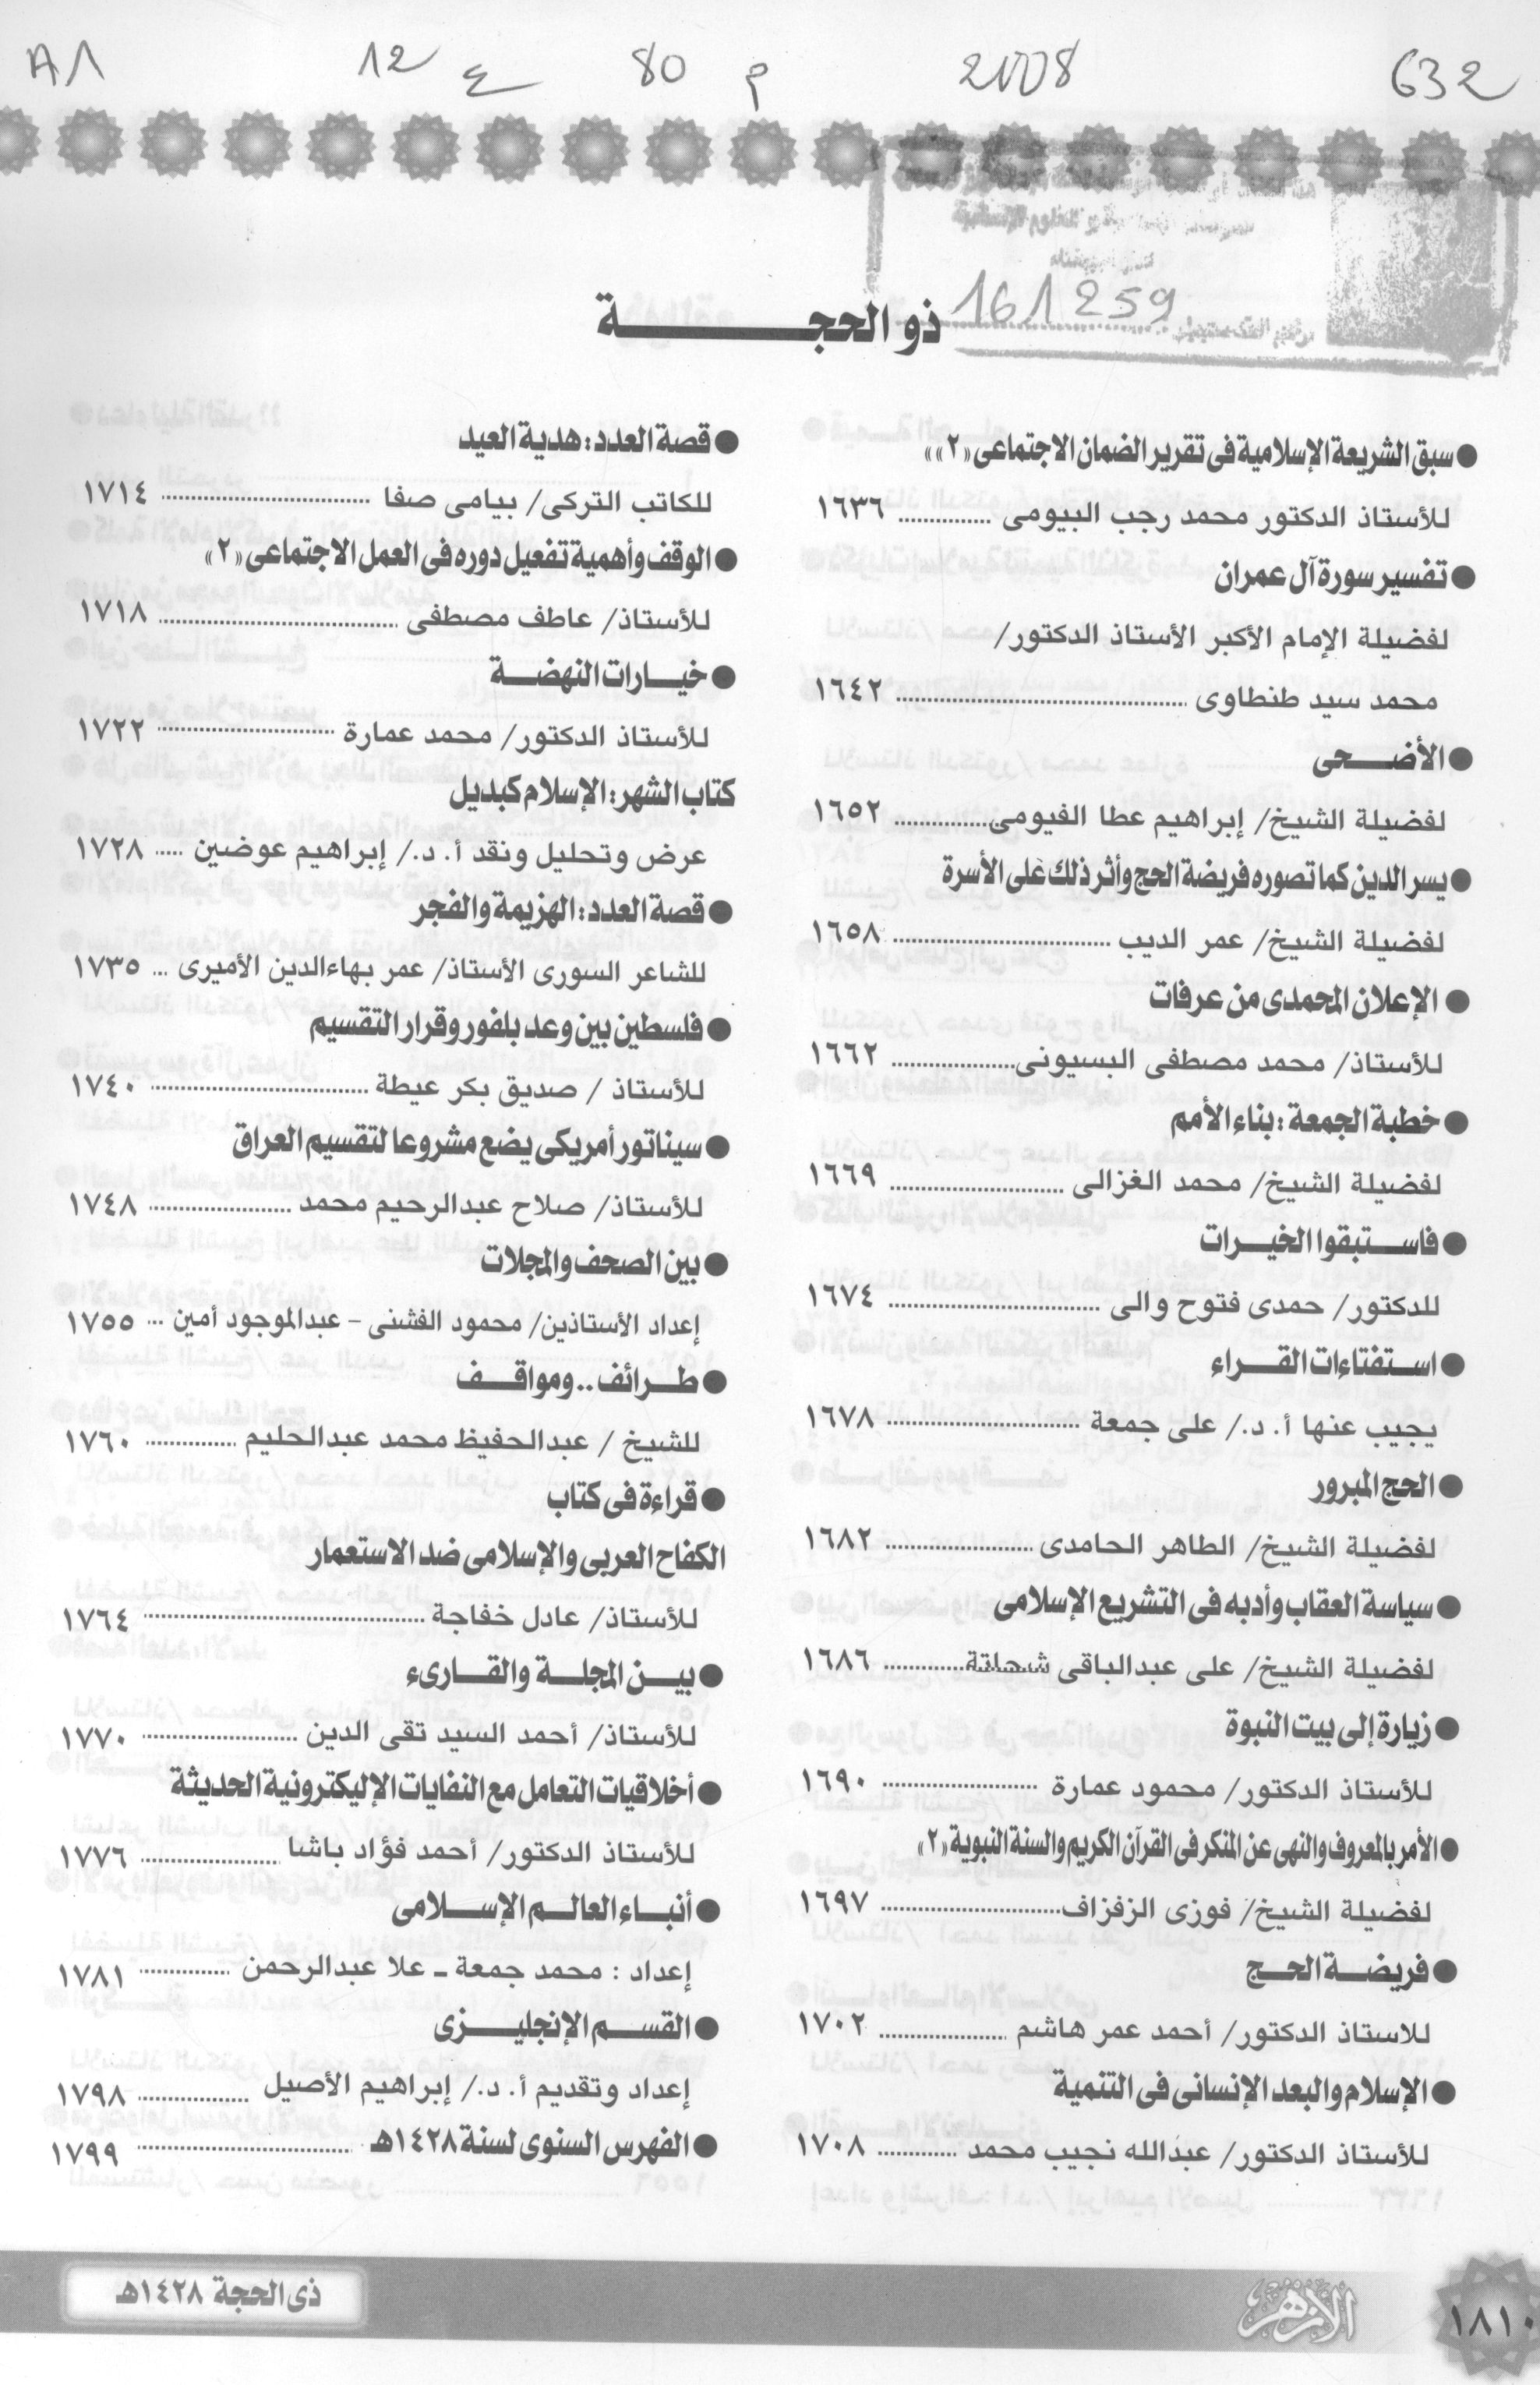 A1 12 ع 80 م 2008 632
161259
ذو الحجـــــة
● سبق الشريعة الإسلامية فى تقرير الضمان الاجتماعى «٢»»
للأستاذ الدكتور محمد رجب البيومى .............. ١٦٣٦
● تفسير سورة آل عمران
لفضيلة الإمام الأكبر الأستاذ الدكتور/
محمد سيد طنطاوى .............. ١٦٤٢
● الأضـــحى
لفضيلة الشيخ/ إبراهيم عطا الفيومى .............. ١٦٥٢
● يسر الدين كما تصوره فريضة الحج وأثر ذلك على الأسرة
لفضيلة الشيخ/ عمر الديب .............. ١٦٥٨
● الإعلان المحمدى من عرفات
للأستاذ/ محمد مصطفى البسيونى .............. ١٦٦٢
● خطبة الجمعة : بناء الأمم
لفضيلة الشيخ/ محمد الغزالى .............. ١٦٦٩
● فاســتبقوا الخيــرات
للدكتور/ حمدى فتوح والى .............. ١٦٧٤
● اســتفتاءات القــراء
يجيب عنها أ. د./ على جمعة .............. ١٦٧٨
● الحج المبرور
لفضيلة الشيخ/ الطاهر الحامدى .............. ١٦٨٢
● سياسة العقاب وأدبه فى التشريع الإسلامى
لفضيلة الشيخ/ على عبدالباقى شحاتة .............. ١٦٨٦
● زيارة إلى بيت النبوة
للأستاذ الدكتور/ محمود عمارة .............. ١٦٩٠
● الأمر بالمعروف والنهى عن المنكر فى القرآن الكريم والسنة النبوية «٢»
لفضيلة الشيخ/ فوزى الزفزاف .............. ١٦٩٧
● فريضــة الحــج
للاستاذ الدكتور/ أحمد عمر هاشم .............. ١٧٠٢
● الإسلام والبعد الإنسانى فى التنمية
للأستاذ الدكتور/ عبدالله نجيب محمد .............. ١٧٠٨
● قصة العدد : هدية العيد
للكاتب التركى/ بيامى صفا .............. ١٧١٤
● الوقف وأهمية تفعيل دوره فى العمل الاجتماعى «٢»
للأستاذ/ عاطف مصطفى .............. ١٧١٨
● خيــارات النهضــة
للأستاذ الدكتور/ محمد عمارة .............. ١٧٢٢
كتاب الشهر : الإسلام كبديل
عرض وتحليل ونقد أ. د./ إبراهيم عوضين ..... ١٧٢٨
● قصة العدد : الهزيمة والفجر
للشاعر السورى الأستاذ/ عمر بهاءالدين الأميرى ... ١٧٣٥
● فلسطين بين وعد بلفور وقرار التقسيم
للأستاذ / صديق بكر عيطة .............. ١٧٤٠
● سيناتور أمريكى يضع مشروعا لتقسيم العراق
للأستاذ/ صلاح عبدالرحيم محمد .............. ١٧٤٨
● بين الصحف والمجلات
إعداد الأستاذين/ محمود الفشنى - عبدالموجود أمين ... ١٧٥٥
● طــرائف .. ومواقــف
للشيخ / عبدالحفيظ محمد عبدالحليم .............. ١٧٦٠
● قراءة فى كتاب
الكفاح العربى والإسلامى ضد الاستعمار
للأستاذ/ عادل خفاجة .............. ١٧٦٤
● بيــن المجلــة والقــارىء
للأستاذ/ أحمد السيد تقى الدين .............. ١٧٧٠
● أخلاقيات التعامل مع النفايات الإليكترونية الحديثة
للأستاذ الدكتور/ أحمد فؤاد باشا .............. ١٧٧٦
● أنبــاء العالــم الإســلامى
إعداد : محمد جمعة ـ علا عبدالرحمن .............. ١٧٨١
● القســم الإنجليــزى
إعداد وتقديم أ. د./ إبراهيم الأصيل .............. ١٧٩٨
● الفهرس السنوى لسنة ١٤٢٨هـ .............. ١٧٩٩
١٨١٠ الأزهر ذى الحجة ١٤٢٨هـ